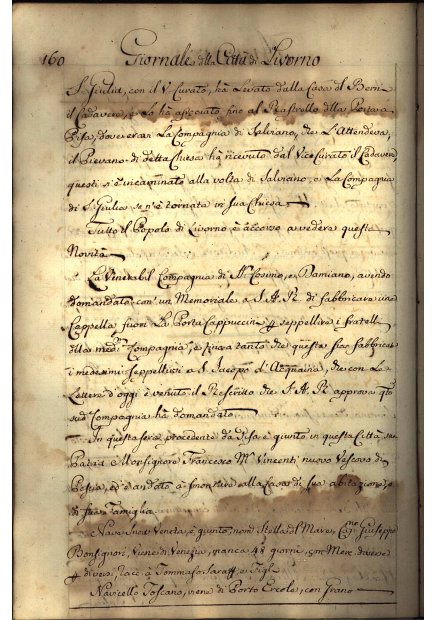 160 Giornale della Città di Livorno
S. Giulia, con il V. Curato, ha Levato dalla Casa del Berni
il Cadavere, e Lo ha associato fino al Rastrello della Porta a
Pisa, dove era La Compagnia di Salviano, che L'Attendeva,
il Pievano di detta Chiesa ha ricevuto dal Vice Curato il Cadavere
questi s'è incaminato alla volta di Salviano, e La Compagnia
di S. Giulia se n'è tornata in sua Chiesa
Tutto il Popolo di Livorno è accorso a vedere questa
Novità
La Venerabil Compagnia di SS. Cosimo, e Damiano, avendo
domandato con un Memoriale a S. A. R. di fabbricare una
Cappella fuori La Porta Cappuccini p seppellire i fratelli
della med.ma Compagnia, e fino a tanto che questa sia fabbricata
i medesimi seppellirsi a S. Jacopo d'Acquaina, che con Le
Lettere d'oggi è venuto il Rescritto che S. A. R. approva qto
sud.a Compagnia ha domandato
In questa sera procedente da Pisa è giunto in questa Città sua
Patria Monsignore Francesco M.a Vincenti nuovo Vescovo di
Pescia, ed è andato a smontare alla Casa di sua abitazione,
di sua Famiglia
Nave Veneta, è giunto, nom. Stella del Mare, Cap.no Giuseppe
Bonsignori, viene di Venezia, manca 48 giorni, con Merc. diverse
p diversi, racc. a Tommaso Saraff, e Figl.
Navicello Toscano, viene di Porto Ercole, con Grano